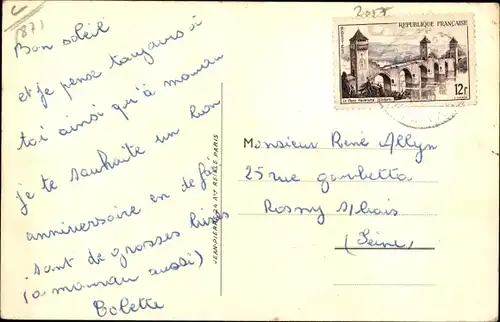 (87)
Bon soleil
et je pense toujours à
toi ainsi qu'à maman
je te souhaite un bon
anniversaire en te fai
sant de grosses bises
(à maman aussi)
Bolette
JEAN-PIERRE PARIS
REPUBLIQUE FRANÇAISE
12f
Monsieur René Allyn
25 rue gambetta
Rosny s/bois
(Seine)